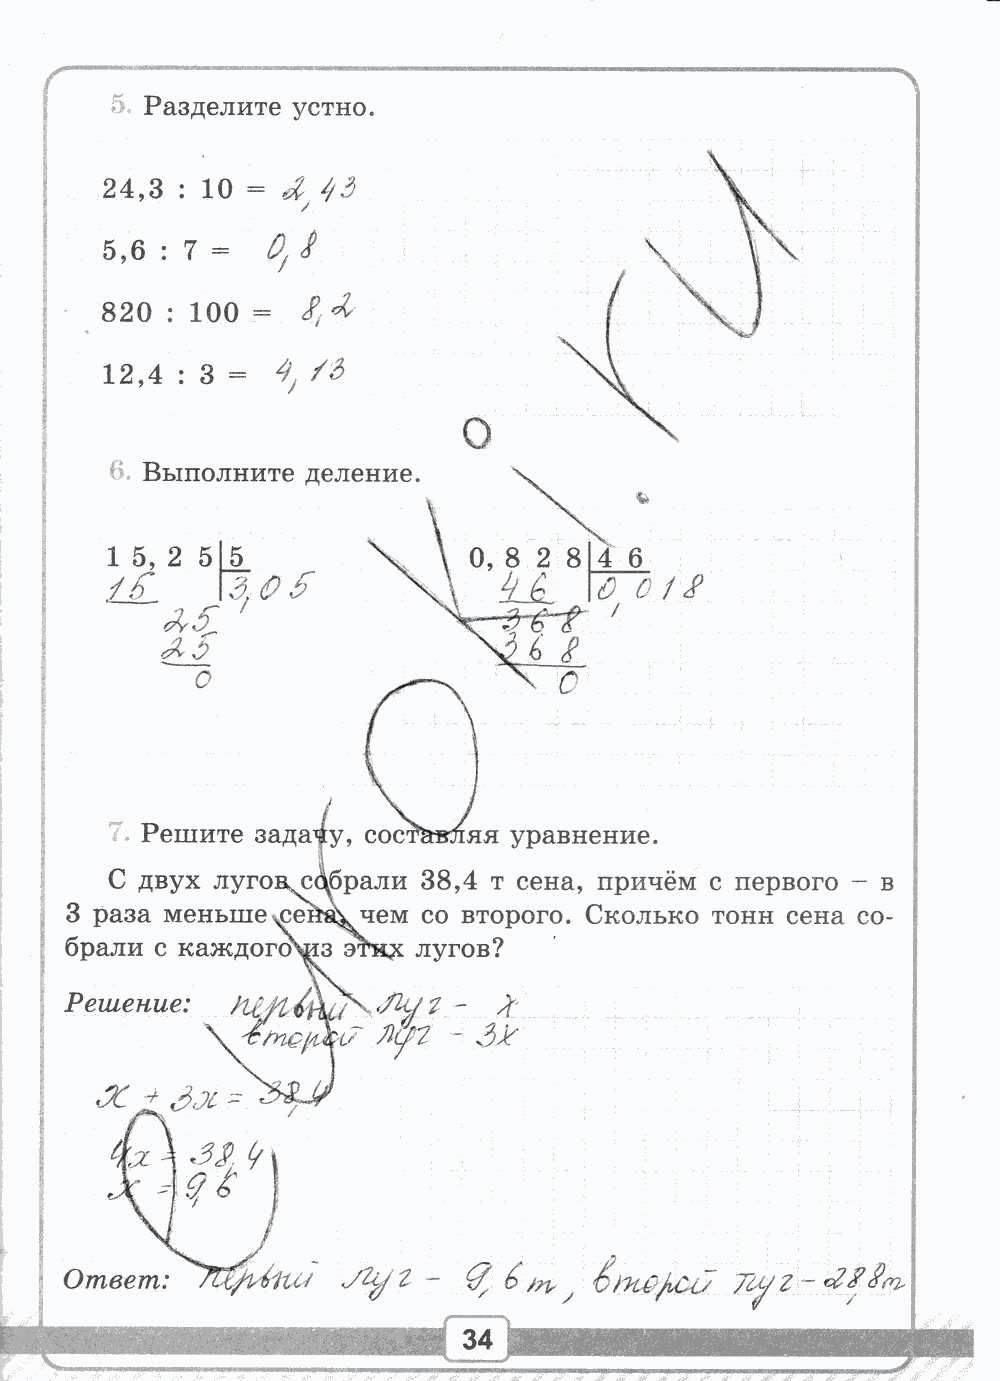 5. Разделите устно.
24,3 : 10 = 2,43
5,6 : 7 = 0,8
820 : 100 = 8,2
12,4 : 3 = 4,13
6. Выполните деление.
1 5, 2 5 5
15 3,05
25
25
0
0, 8 2 8 4 6
46 0,018
368
368
0
7. Решите задачу, составляя уравнение.
С двух лугов собрали 38,4 т сена, причём с первого – в
3 раза меньше сена, чем со второго. Сколько тонн сена со-
брали с каждого из этих лугов?
Решение: первый луг - х
второй луг - 3х
х + 3х = 38,4
4х = 38,4
х = 9,6
Ответ: первый луг - 9,6т, второй луг - 28,8т
34